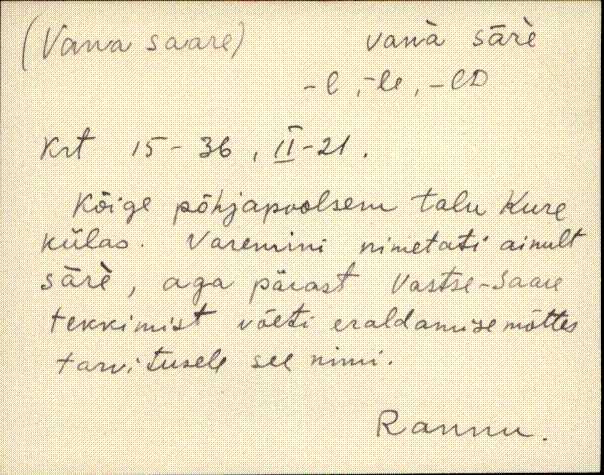 (Vana saare) vanà särè
-l, -le, -lD
Krt 15-36, II-21.
Kõige põhjapoolsem talu Kure
külas. Varemini nimetati ainult
särè, aga pärast Vastse-Saare
tekkimist võeti eraldamise mõttes
tarvitusele see nimi.
Rannu.